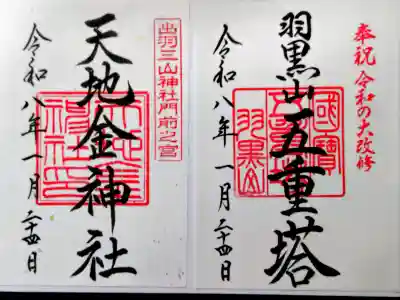 奉祝 令和の大改修
羽黒山五重塔
國寶
五重塔
羽黒山
令和八年一月二十四日
出羽三山神社門前之宮
天地金神社
令和八年一月二十四日